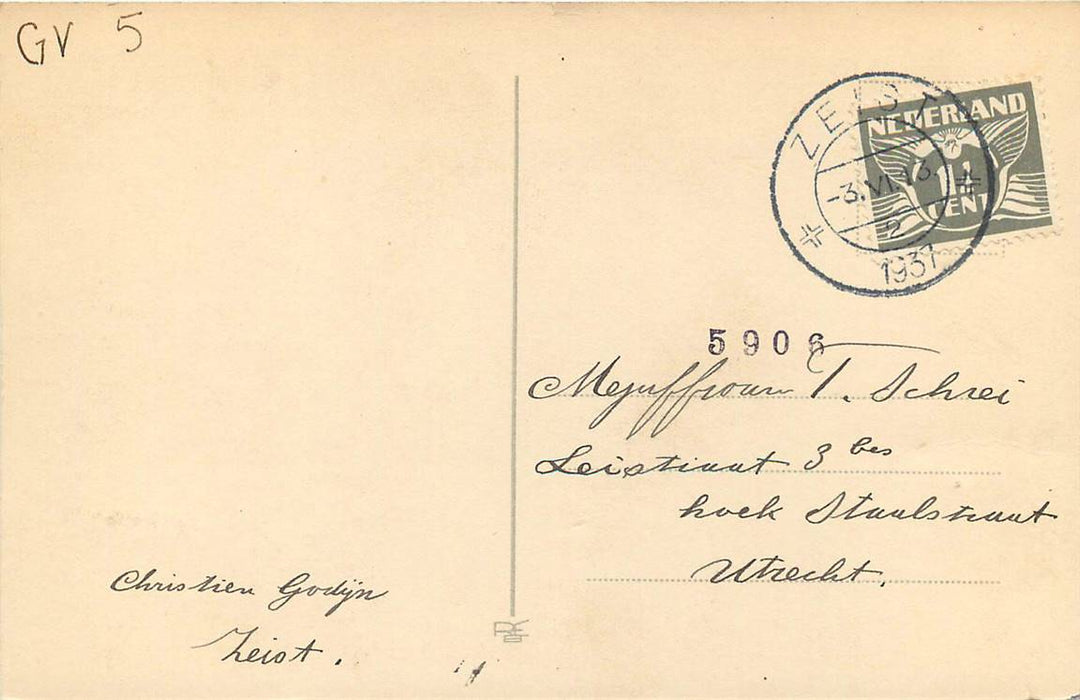 GV 5
ZEIST
-3.VI.13.
2
1937
NEDERLAND
1½
CENT
5906
Mejuffrouw T. Schrei
Leistraat 3 bis
hoek Staalstraat
Utrecht.
Christien Godijn
Zeist.